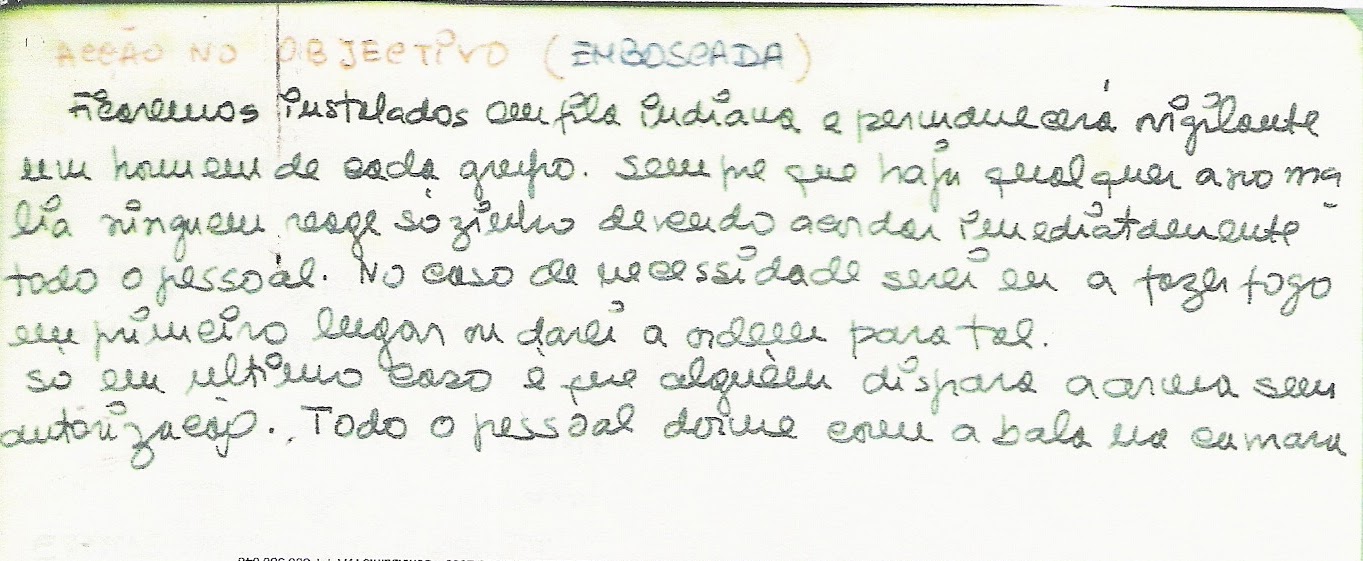 ACÇÃO NO OBJECTIVO (EMBOSCADA)
Ficaremos instalados em fila indiana e permanecerá vigilante
um homem de cada grupo. Sempre que haja qualquer anoma
lia ninguem reage sózinho devendo acordar imediatamente
todo o pessoal. No caso de necessidade serei eu a fazer fogo
em primeiro lugar ou darei a ordem para tal.
Só em ultimo caso é que alguém dispara a arma sem
autorização. Todo o pessoal dorme com a bala na camara